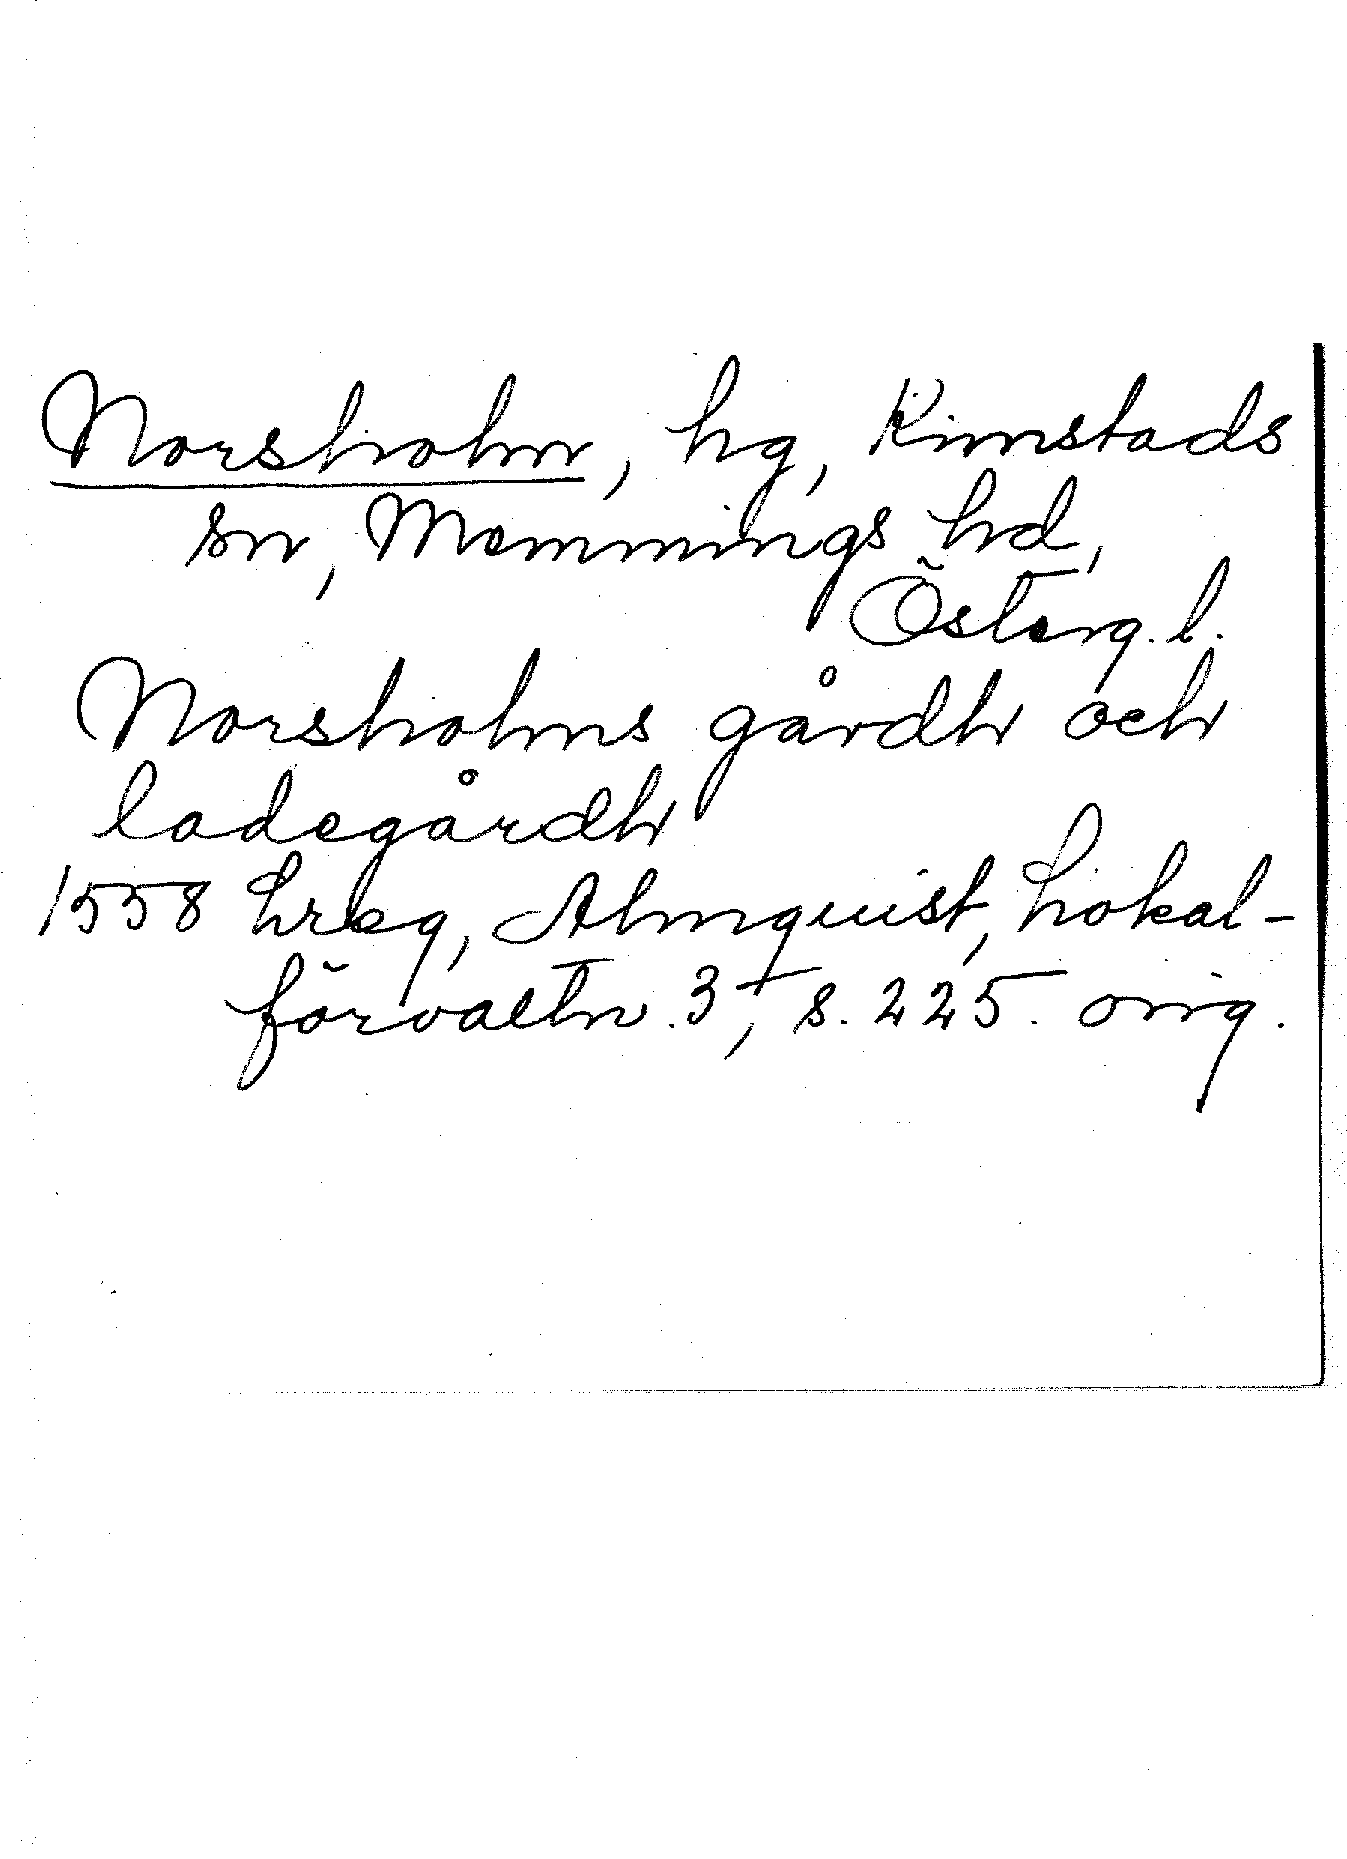 Norsholm, hg, Kimstads
sn, Memmings hd,
Österg. l.
Norsholms gårdh och
ladegårdh
1558 Lreg, Almquist, Lokal-
förvaltn. 3, s. 225. orig.